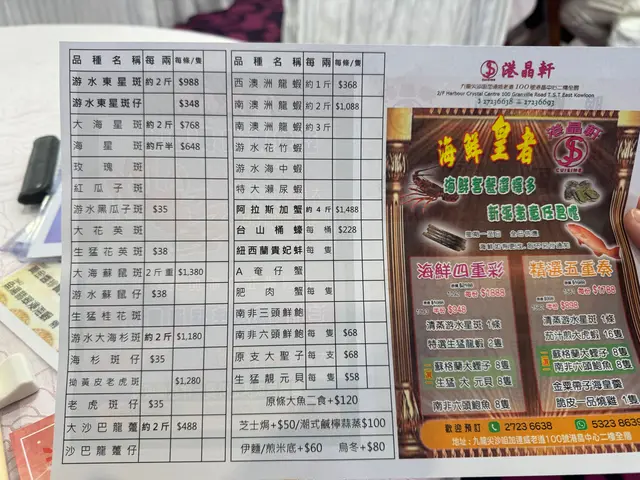 品種名稱 每兩 每條/隻
游水東星斑 約2斤 $988
游水東星斑仔 $348
大海星斑 約2斤 $768
海星斑 約斤半 $648
玫瑰斑
紅瓜子斑
游水黑瓜子斑 $35
大花英斑
生猛花英斑 $38
大海蘇鼠斑 2斤重 $1,380
游水蘇鼠仔 $38
生猛桂花斑
游水大海杉斑 約2斤 $1,180
海杉斑仔 $35
拗黃皮老虎斑 $1,280
老虎斑仔 $35
大沙巴龍躉 約2斤 $488
沙巴龍躉仔
品種名稱 每兩 每條/隻
西澳洲龍蝦 約1斤 $368
南澳洲龍蝦 約2斤 $1,088
南澳洲龍蝦 約3斤
游水花竹蝦
游水海中蝦
特大瀨尿蝦
阿拉斯加蟹 約4斤 $1,488
台山桶蠔 每桶 $228
紐西蘭貴妃蚌 每隻
A奄仔蟹
肥肉蟹 每隻
南非三頭鮮鮑
南非六頭鮮鮑 每隻 $68
原支大聖子 每支 $68
生猛靚元貝 每隻 $58
原條大魚二食+$120
芝士焗+$50/潮式鹹檸蒜蒸$100
伊麵/煎米底+$60 烏冬+$80
港晶軒
九龍尖沙咀加連威老道100號港晶中心二樓全層
2/F Harbour Crystal Centre 100 Granville Road T.S.T East Kowloon
27236638
港晶軒
CUISINE
海鮮皇者
海鮮套餐
海鮮四重彩
$1388
清蒸游水星斑 1條
特選生猛龍蝦 2隻
蘇格蘭大蟶子 8隻
生猛大元貝 8隻
南非六頭鮑魚 8隻
精選五重奏
$1788
清蒸游水星斑 1條
五汁煎大虎蝦 16隻
蘇格蘭大蟶子 8隻
南非六頭鮑魚 8隻
金菜帶子海皇羹
脆皮一品燒雞 1隻
歡迎預訂 2723 6638 5323 8639
地址:九龍尖沙咀加連威老道100號港晶中心二樓全層